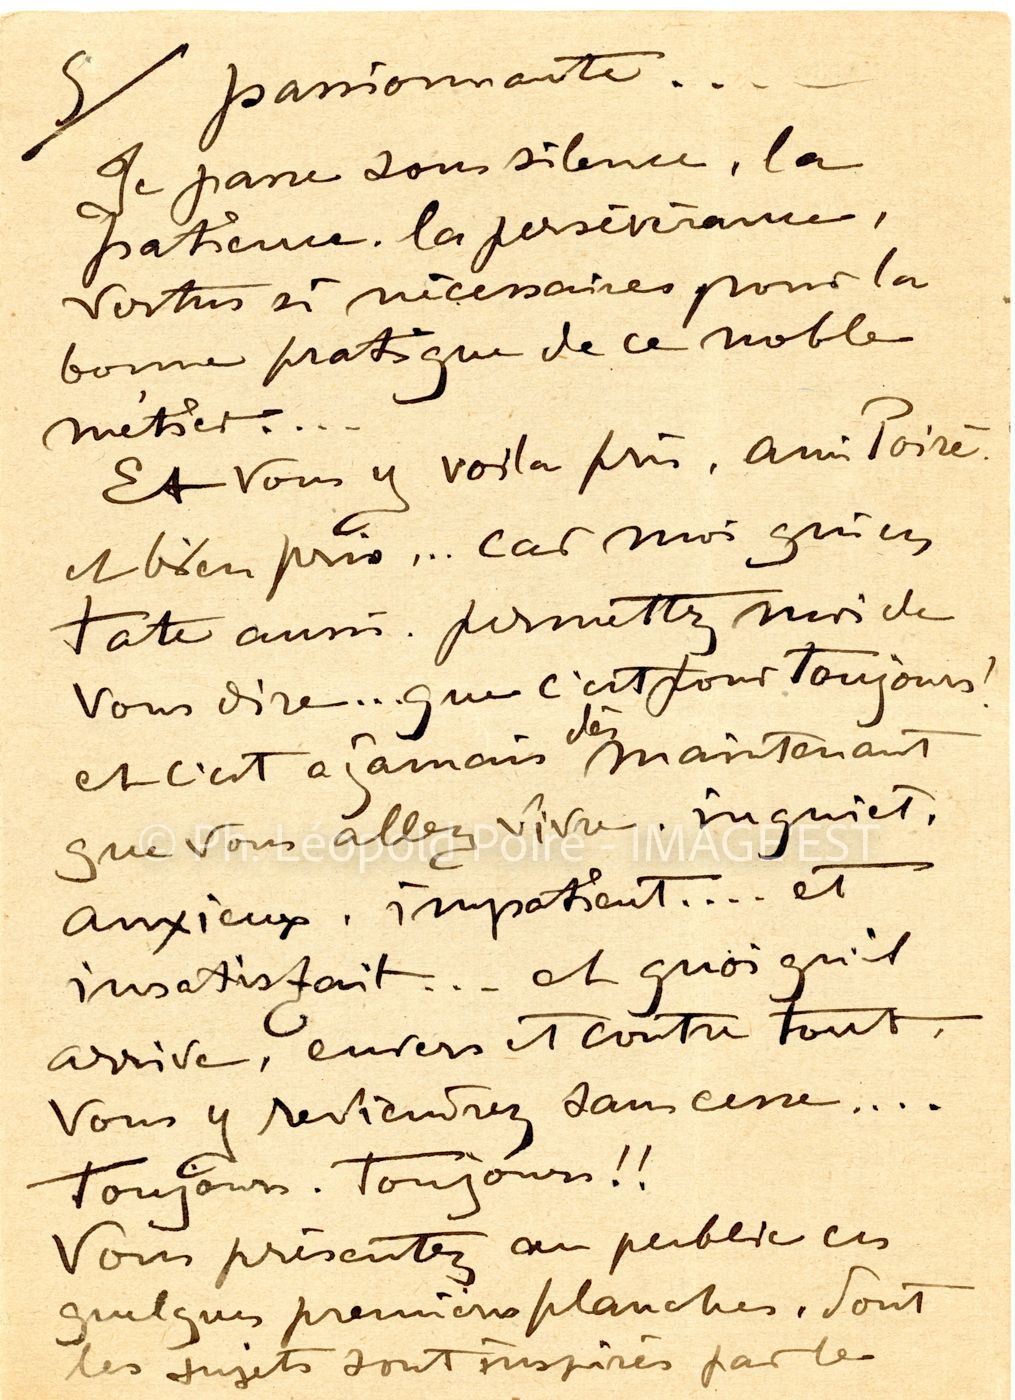 5/ passionnante....
Je passe sous silence, la
patience. la persévérance,
vertus si nécessaires pour la
bonne pratique de ce noble
métier....
Et vous y voila pris, ami Poiré.
et bien pris... car moi qui en
tate aussi. permettez moi de
vous dire... que c'est pour toujours!
et c'est à jamais dès maintenant
que vous allez vivre. inquiet,
anxieux, impatient.... et
insatisfait... et quoi qu'il
arrive, envers et contre tout,
vous y reviendrez sans cesse....
toujours. toujours!!
Vous présentez au public ces
quelques premières planches, dont
les sujets sont inspirés par le
© Ph. Léopold Poiré - IMAGE'EST